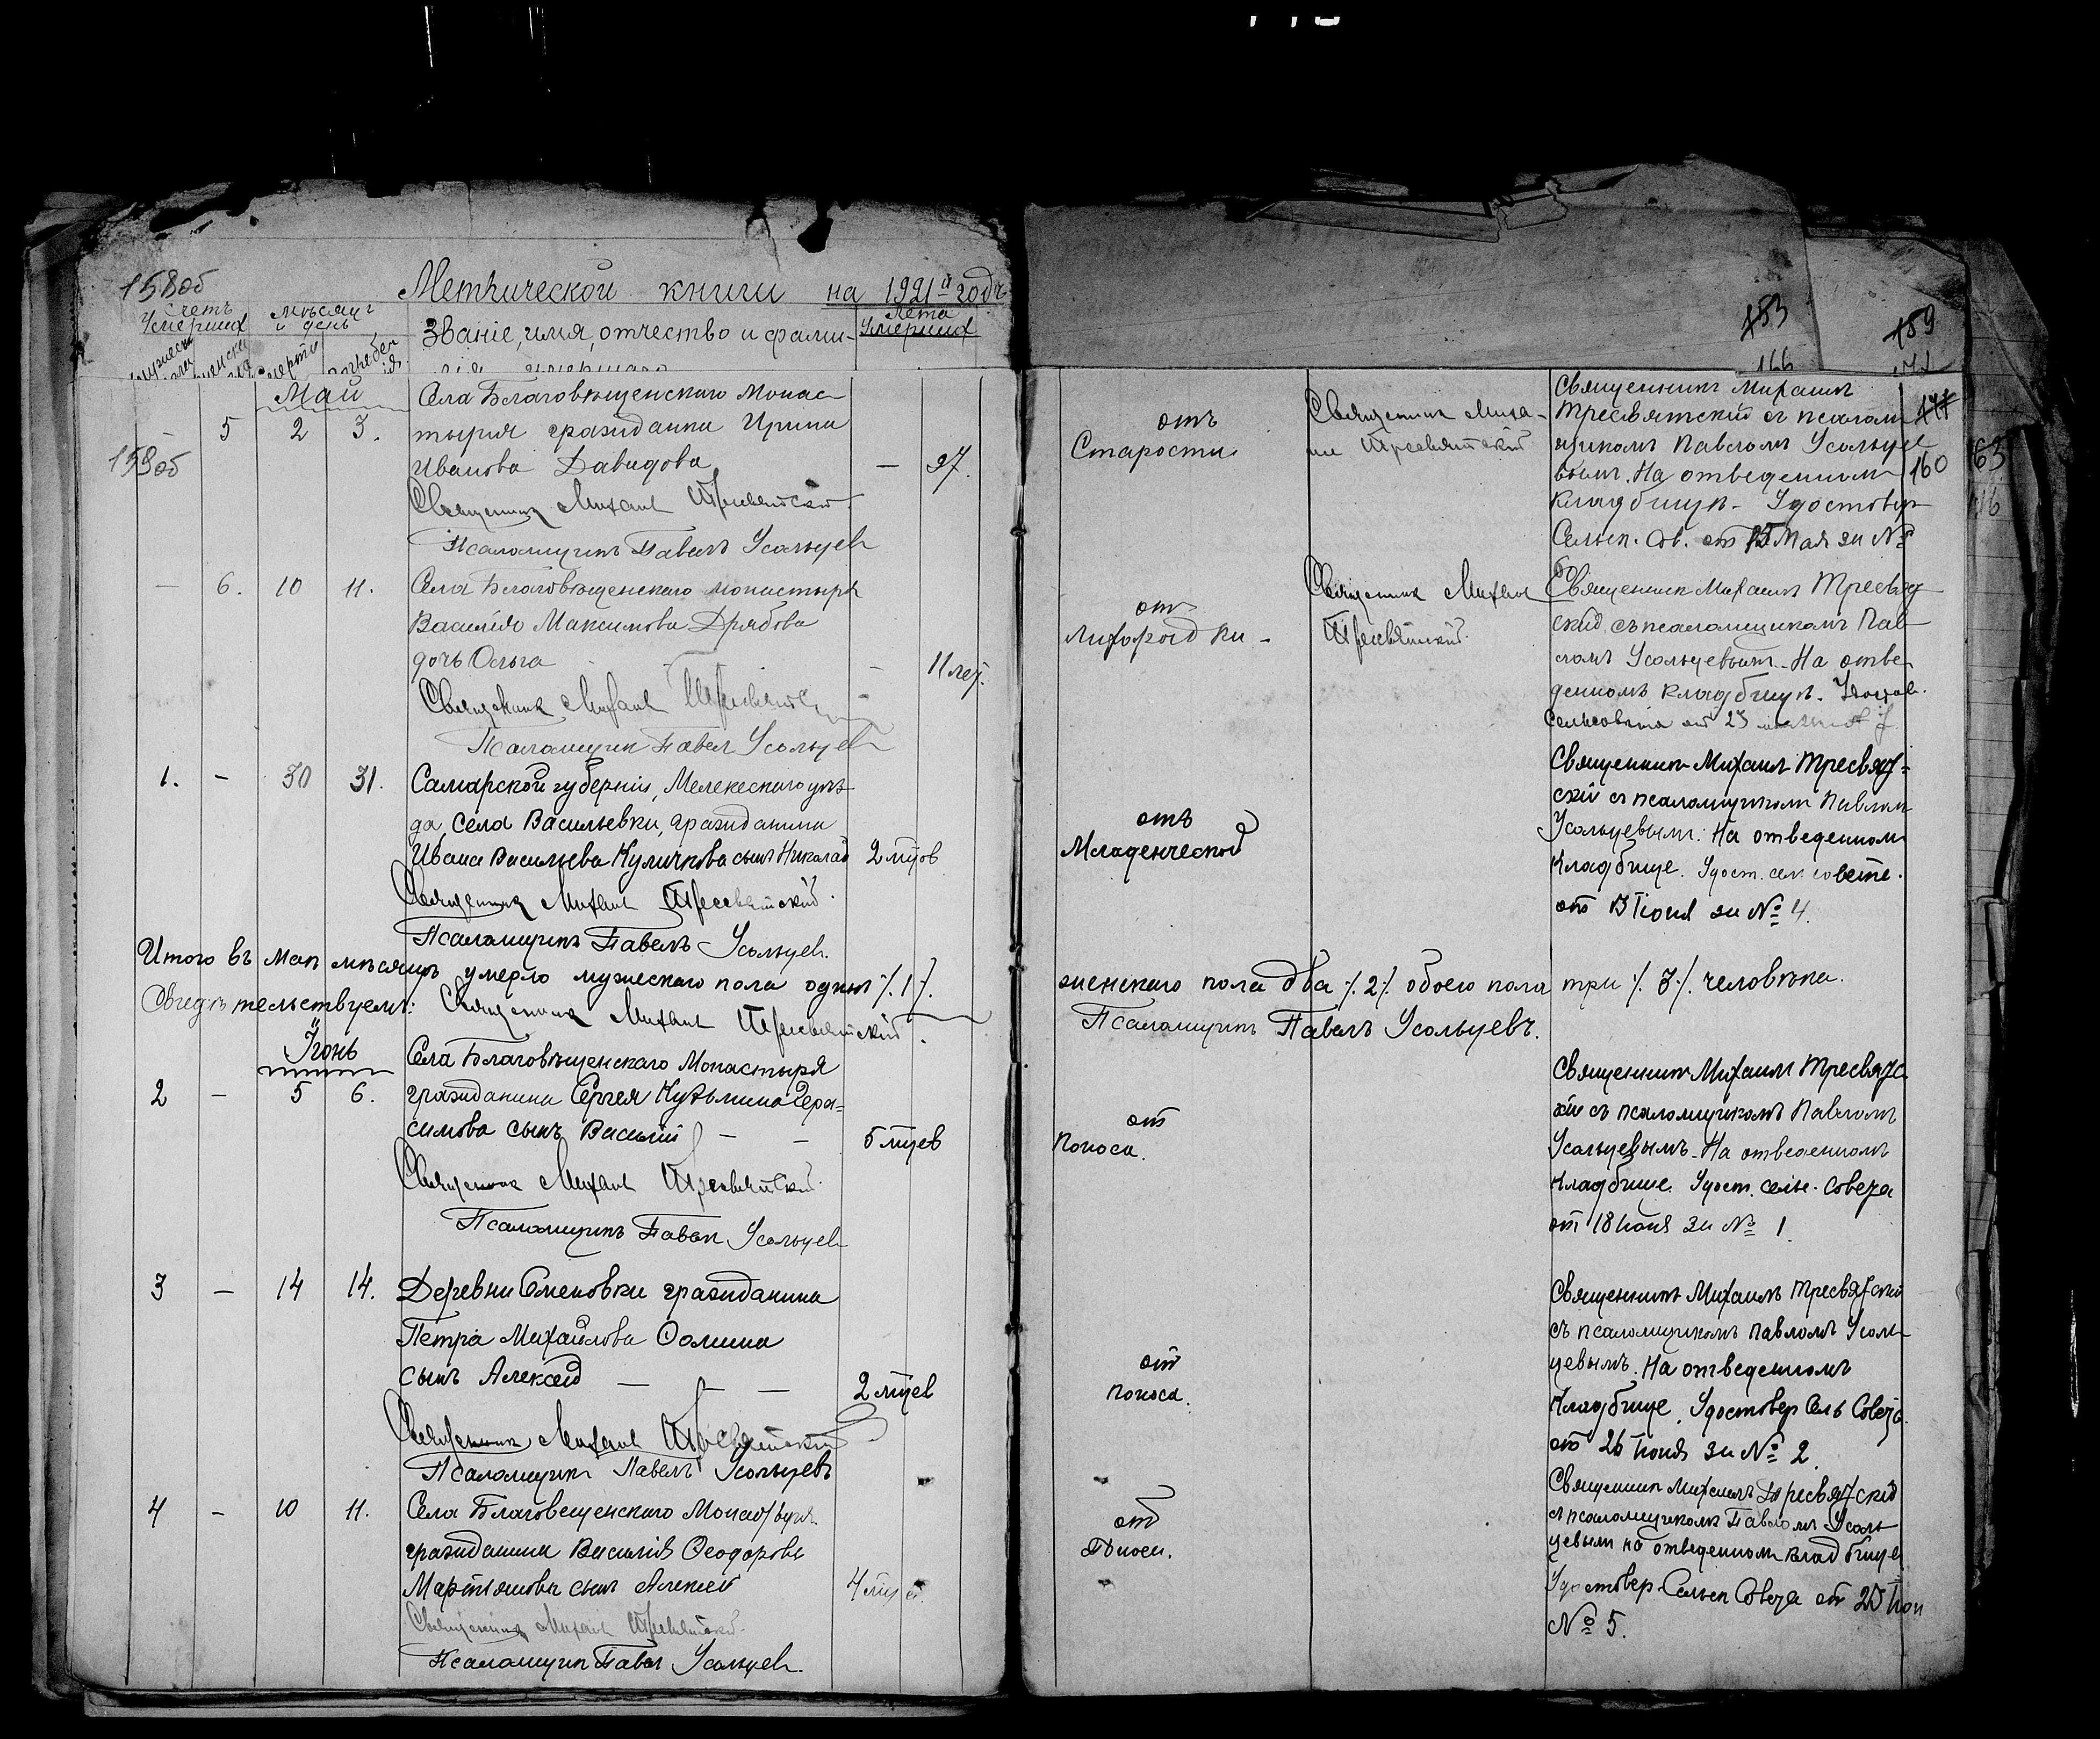 158об
Метрической книги на 1921й годъ
Счетъ умершихъ
Мѣсяцъ и день
Званіе, имя, отчество и фами-
Лета умершихъ
183
166
189
Май
Села Благовѣщенскаго Монас-
5 2 3. тыря гражданка Ирина
159об
Иванова Давидова — 97.
Священникъ Михаилъ Тресвятскій
Псаломщикъ Павелъ Усольцевъ
отъ
Старости
Священникъ Миха-
илъ Тресвятскій
Священникъ Михаилъ
Тресвятский съ псалом
щикомъ Павломъ Усольце
вымъ. На отведенномъ
Кладбищѣ. Удостовер
Сельск. Сов. от Мая за №
177
160
163
— 6. 10 11. Села Благовѣщенскаго монастыря
Василія Максимова Дрябова
дочь Ольга — 11 лет.
Священникъ Михаилъ Тресвятскій
Псаломщик Павел Усольцев
отъ
Лихорадки
Священникъ Михаилъ
Тресвятский
Священник Михаилъ Тресвят
ский съ псаломщикомъ Пав
ломъ Усольцевымъ. На отве
денномъ кладбищѣ.
Сельсовета от 23
1. — 30 31. Самарской губерніи, Мелекескаго уѣз
да, села Васильевки, гражданина
Ивана Васильева Куличкова сынъ Николай 2 мцов
Священникъ Михаилъ Тресвятский
Псаломщикъ Павелъ Усольцев.
отъ
Младенческой
Священникъ Михаил Тресвят=
скій съ псаломщикомъ Павлом
Усольцевымъ. На отведенном
Кладбище. Удост. сел. совете.
отъ 13 Іюня за № 4.
Итого въ Маѣ мѣсяцѣ умерло мужескаго пола одинъ ./.1./. женскаго пола два ./.2./. обоего пола три ./.3./. человѣка.
Свидѣтельствуемъ: Священникъ Михаилъ Тресвятский. Псаломщикъ Павелъ Усольцевъ.
Іюнь
Села Благовѣщенскаго Монастыря
2 — 5 6. гражданина Сергея Кузьмина Гера=
симова сынъ Василій — — 5 мцев
Священникъ Михаилъ Тресвятский
Псаломщикъ Павел Усольцев
от
Поноса.
Священникъ Михаил Тресвятс
кій съ псаломщикомъ Павломъ
Усольцевымъ. На отведенномъ
Кладбище. Удост. сельс. Совета
от 18 Іюня за № 1.
3 — 14 14. Деревни Семеновки гражданина
Петра Михайлова Сомина
сынъ Алексей — — — 2 мцев
Священникъ Михаилъ Тресвятский
Псаломщикъ Павелъ Усольцевъ
от
поноса.
Священникъ Михаилъ Тресвятский
съ псаломщикомъ Павломъ Усоль
цевымъ. На отведенномъ
Кладбище. Удостовер Сель Совета.
от 26 Іюня за № 2.
4 — 10 11. Села Благовещенскаго Монастыря
гражданина Василія Феодорова
Мартьянова сынъ Алексей 4 мцев.
Священникъ Михаилъ Тресвятский
Псаломщик Павел Усольцев.
от
Поноса.
Священникъ Михаилъ Тресвятский
съ псаломщикомъ Павломъ Усоль
цевым на отведенном кладбище
Удостовер. Сельск Совета от 20 Іюн
№ 5.